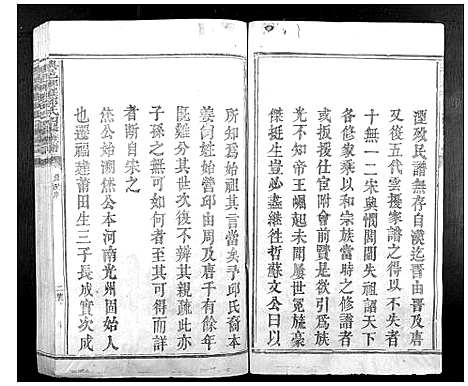 湮歿民譜無存自漢迄晉由晉及唐
又後五代雲擾家譜之得以不失者
十無一二宋與憫閥閱失祖詔天下
各修家乘以和宗族當時之修譜者
大率援仕宦附會歷代顯宦引為族
帝王崛起未間屢世冕旒豪
傑挺生豈必盡繼往哲蘇文公曰以
所知為始祖其言當矣予邱氏裔本
姜尚姓始營邱由周及唐千有餘年
既難分其世次後不辨其親疏此亦
子孫之無可如何者至其可得而詳
者斷自宋之
焦公始溯焦公本河南光州固始人
也遷福建莆田生三子長成實次成